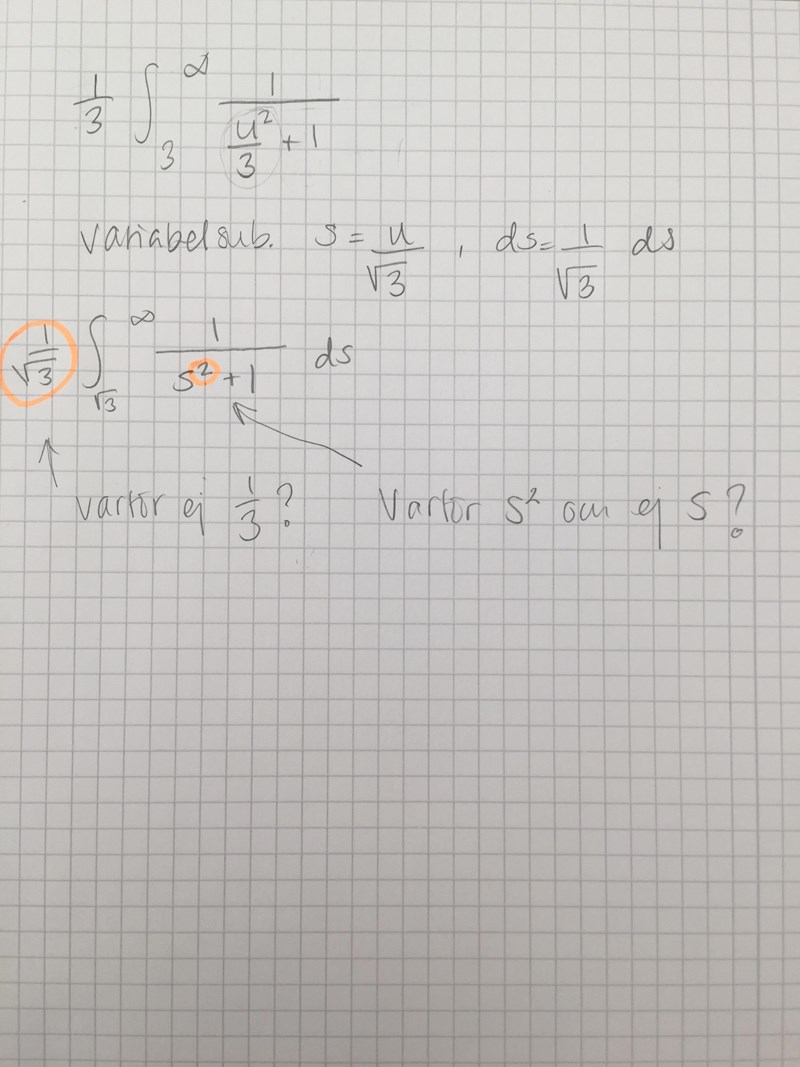 1/3 ∫₃^∞ 1/(u²/3 + 1)
Variabelsub. s = u/√3 , ds = 1/√3 ds
1/√3 ∫_√3^∞ 1/(s² + 1) ds
Varför ej 1/3? Varför s² om ej s?